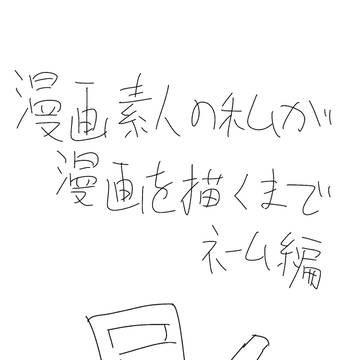 漫画素人の私が
漫画を描くまで
ネーム編